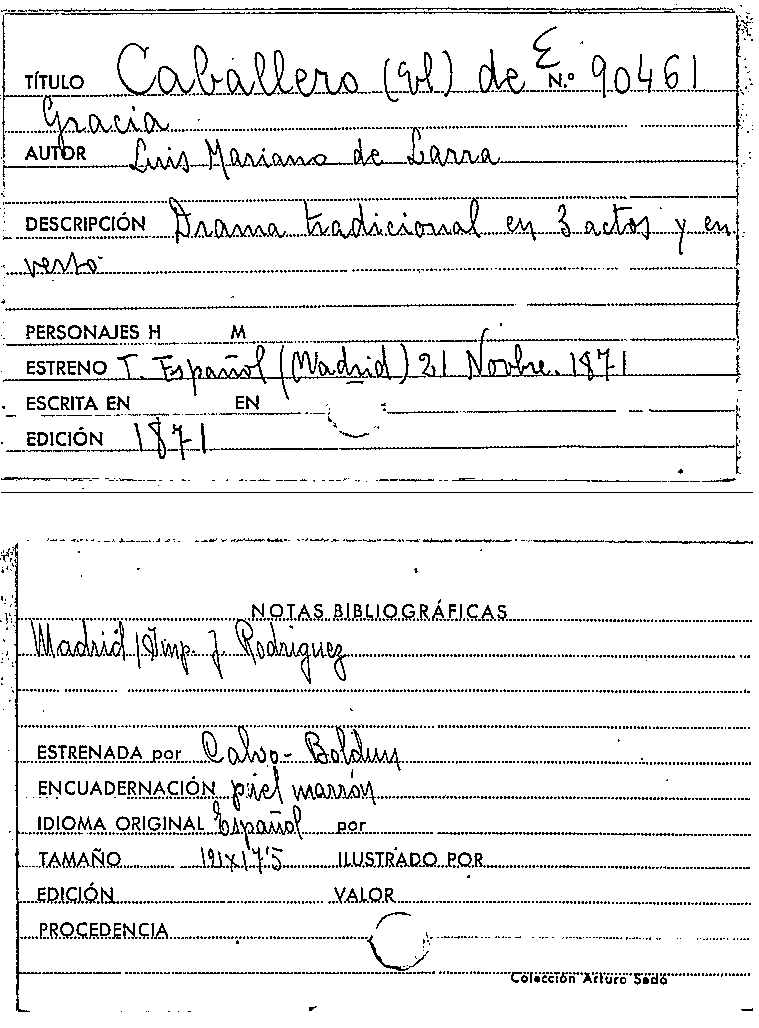 TÍTULO Caballero (El) de Nº 90461
Gracia
AUTOR Luis Mariano de Larra
DESCRIPCIÓN Drama tradicional en 3 actos y en
verso
PERSONAJES H M
ESTRENO T. Español (Madrid) 21 Novbre. 1871
ESCRITA EN EN
EDICIÓN 1871
NOTAS BIBLIOGRÁFICAS
Madrid / Imp. J. Rodriguez
ESTRENADA por Calvo - Boldun
ENCUADERNACIÓN piel marrón
IDIOMA ORIGINAL Español por
TAMAÑO ILUSTRADO POR
EDICIÓN VALOR
PROCEDENCIA
Colección Arturo Sedó